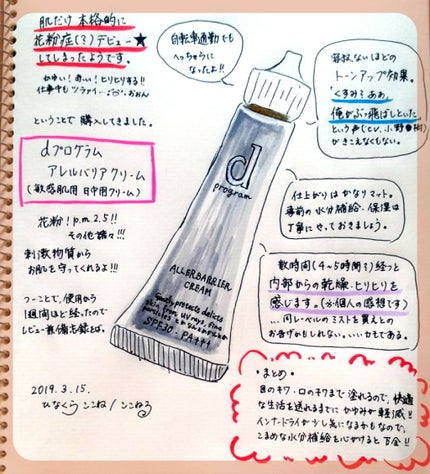 肌だけ本格的に
花粉症(?)デビュー★
してしまったようです。
かゆい!赤い!ヒリヒリする!!
仕事中もツラァイ…おぉん
ということで購入してきました。
dプログラム
アレルバリアクリーム
(敏感肌用 日中用クリーム)
花粉!p.m 2.5!!
その他諸々!!!
刺激物質から
お肌を守ってくれるよ!!!
つーことで、使用から
1週間ほど経ったので
レビュー兼備忘録とば。
2019.3.15.
ひなくら ここね/
自転車通勤でも
へっちゃらに
なったよ!!
d
program
ALLERBARRIER
CREAM
Gently protects delicate
skin from UV rays, fine
particles
SPF30・PA+++
容赦ないほどの
トーンアップ効果。
「くすみ?ああ、
俺がぶっ飛ばしといた」
という声(CV.小野
がきこえなくもない。
仕上がりはかなりマット。
事前の水分補給・保湿は
丁寧にやっておきましょう。
数時間(4~5時間?)経つと
内部からの乾燥・ヒリヒリを
感じます。(※個人の感想です)
…同レーベルのミストを買えとの
お告げかもしれない。いいカモである。
・まとめ・
目のキワ・口のキワまで塗れるので、快適
な生活を送れるまでにかゆみが軽減!!
インナードライが少し気になるかもなので、
こまめな水分補給を心がけると万全!!